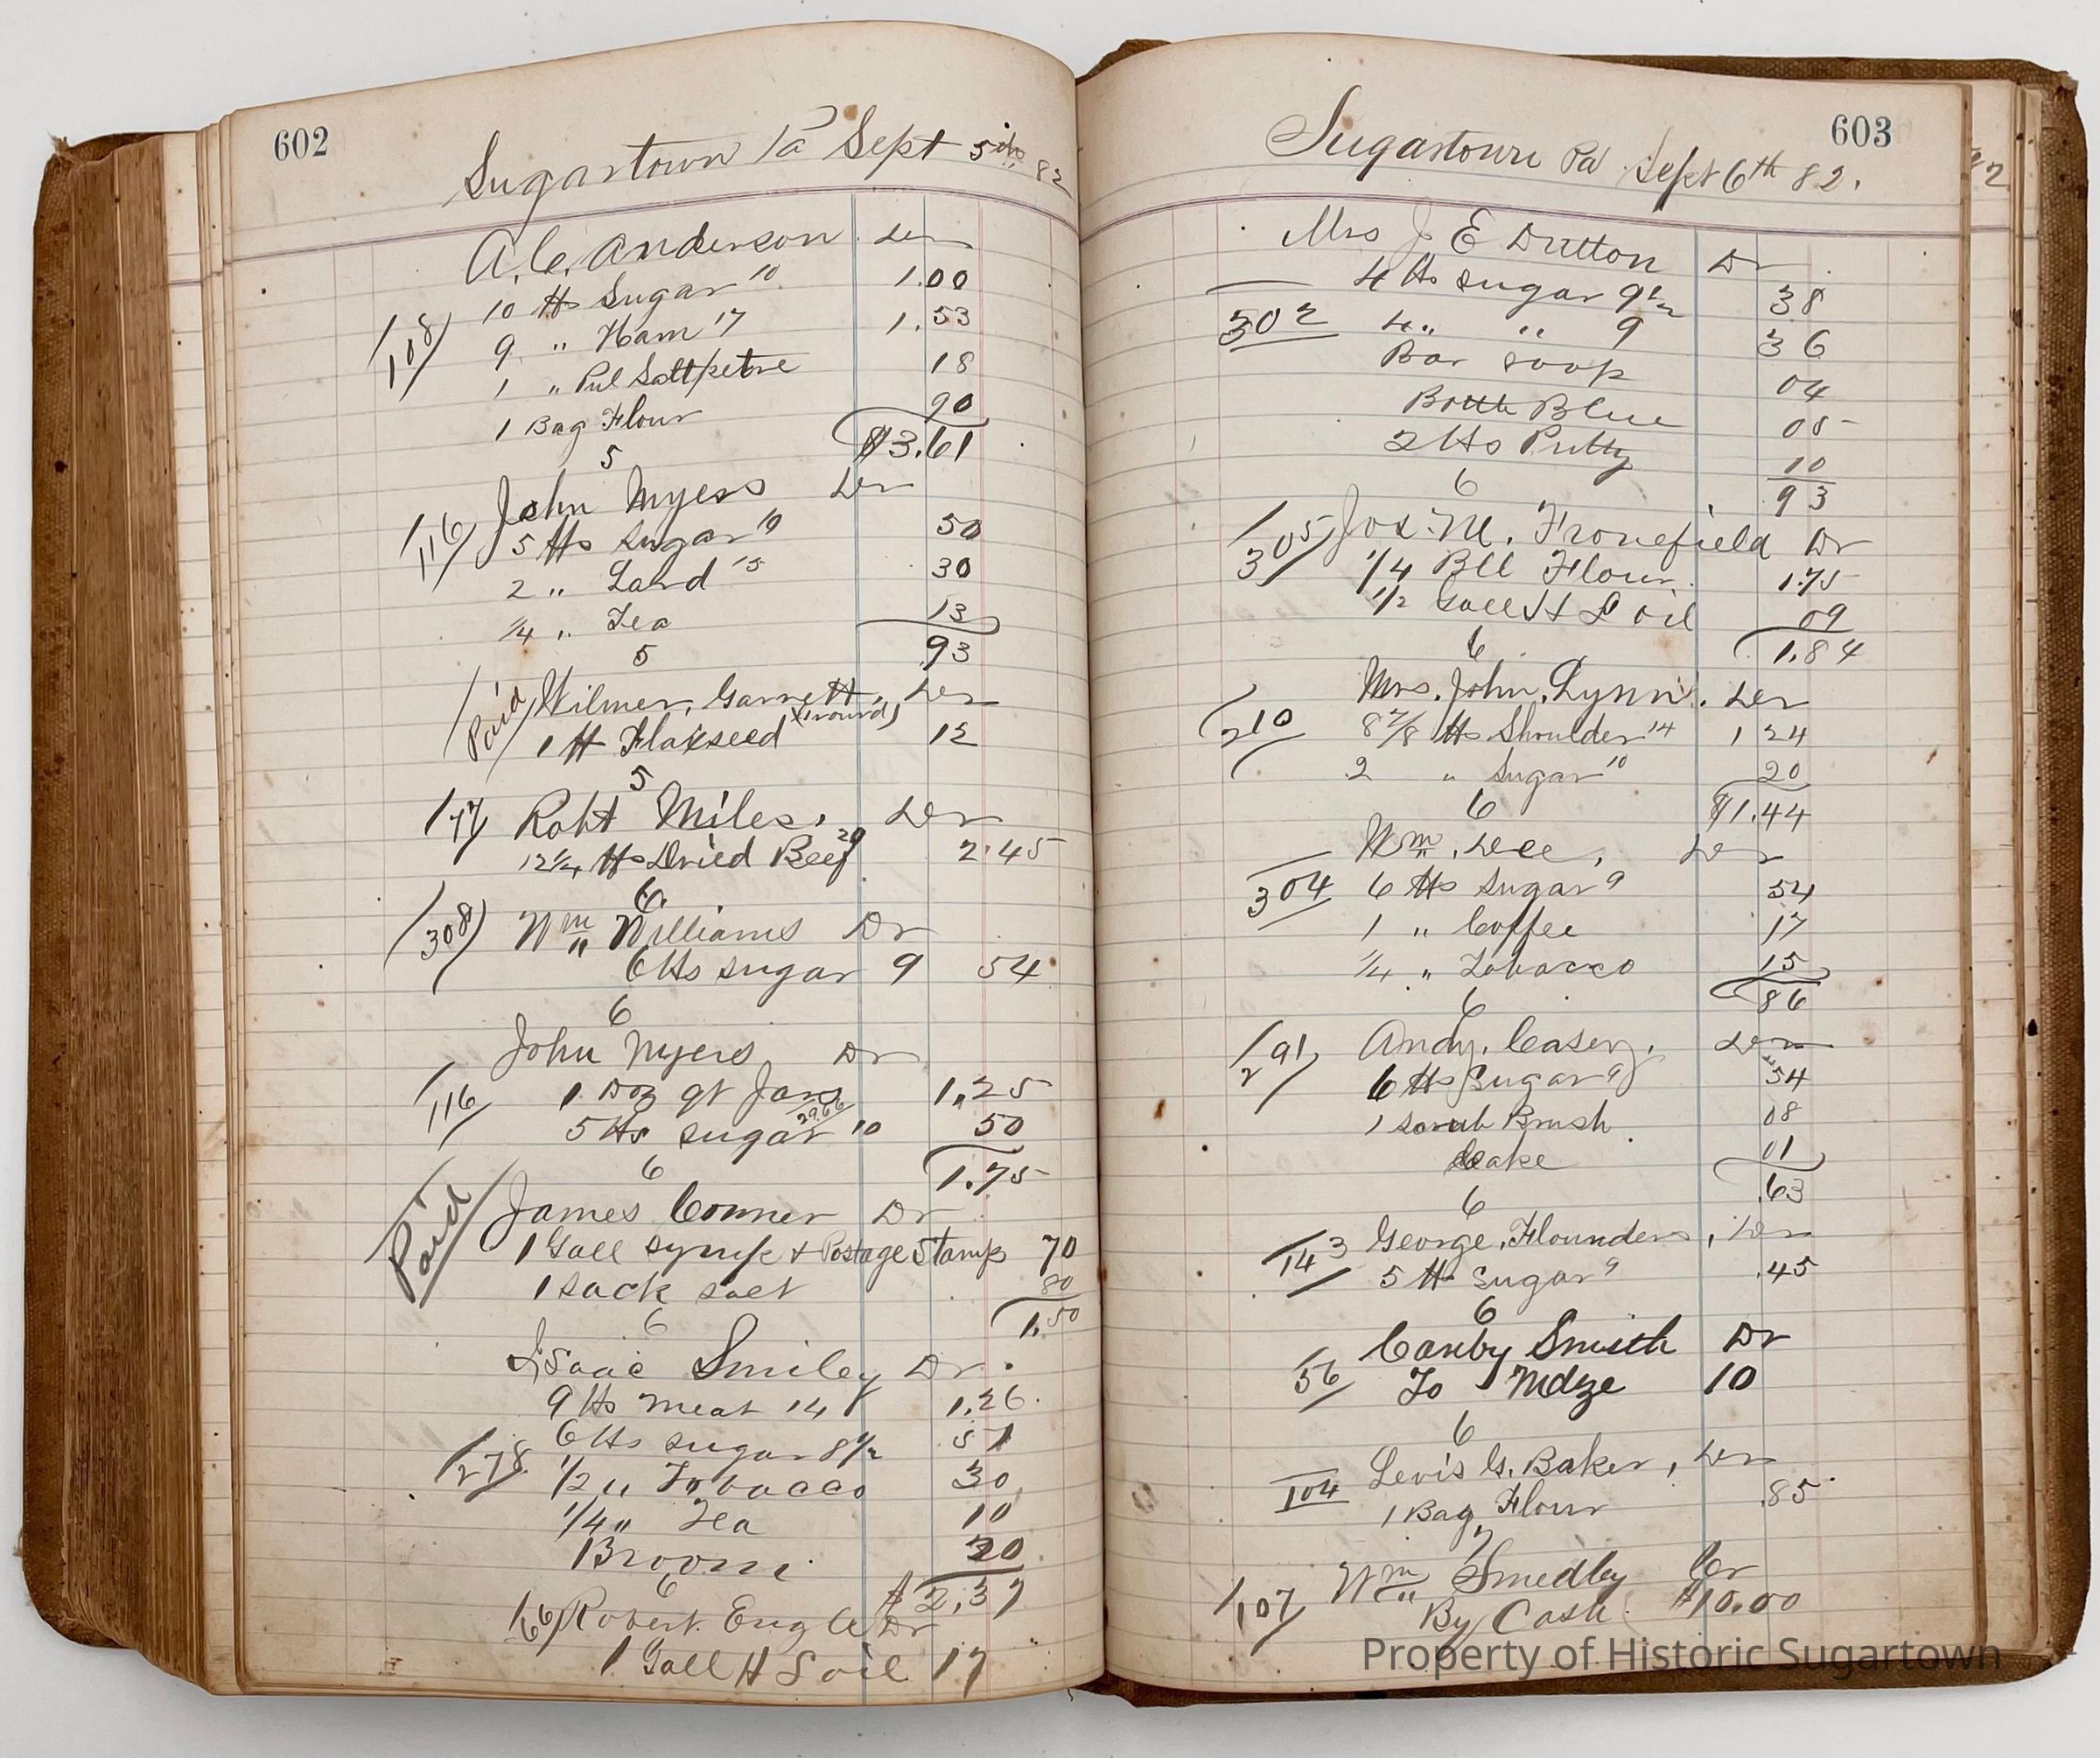 602
Sugartown Pa Sept 5th 82
A. C. Anderson Dr
10 lbs Sugar 10 1.00
108 9 " Ham 17 1.53
1 " Pul Saltpetre 18
1 Bag Flour 90
$3.61
5
John Myers Dr
116 5 lbs sugar 10 50
2 " Lard 15 30
1/4 " Tea 13
93
5
Paid Wilmer Garrett, Dr
1 lb Flaxseed (Ground) 12
5
77 Robt Miles, Dr
12 1/4 lbs Dried Beef 20 2.45
6
308 Wm Williams Dr
6 lbs sugar 9 54
6
John Myers Dr
116 1 Doz qt Jars 1.25
5 lbs sugar 10 50
1.75
6
Paid James Conner Dr
1 Gall syrup & Postage Stamp 70
1 sack salt 80
1.50
6
Isaac Smiley Dr
9 lbs meat 14 1.26
6 lbs sugar 8 1/2 51
278 1/2 " Tobacco 30
1/4 " Tea 10
Broom 20
$2.37
6
66 Robert Engle Dr
1 Gall H L oil 17
603
Sugartown Pa Sept 6th 82.
Mrs J E Dutton Dr
4 lbs sugar 9 1/2 38
302 4 " " 9 36
Bar soap 04
Bottle Blue 05
2 lbs Putty 10
93
6
305 Jos. M. Fronefield Dr
1/4 Bll Flour 1.75
1/2 Gall H L oil 09
1.84
6
Mrs. John Lynn. Dr
210 8 7/8 lbs Shoulder 14 1 24
2 " Sugar 10 20
$1.44
6
Wm. Lee, Dr
304 6 lbs Sugar 9 54
1 " Coffee 17
1/4 " Tobacco 15
86
6
291 Andy. Casey. Dr
6 lbs Sugar 9 54
1 scrub Brush 08
Cake 01
.63
6
143 George Flounders, Dr
5 lb Sugar 9 .45
6
Canby Smith Dr
56 To Mdze 10
6
Lewis G. Baker, Dr
104 1 Bag Flour .85
7
Wm Smedley Cr
107 By Cash $10.00
Property of Historic Sugartown